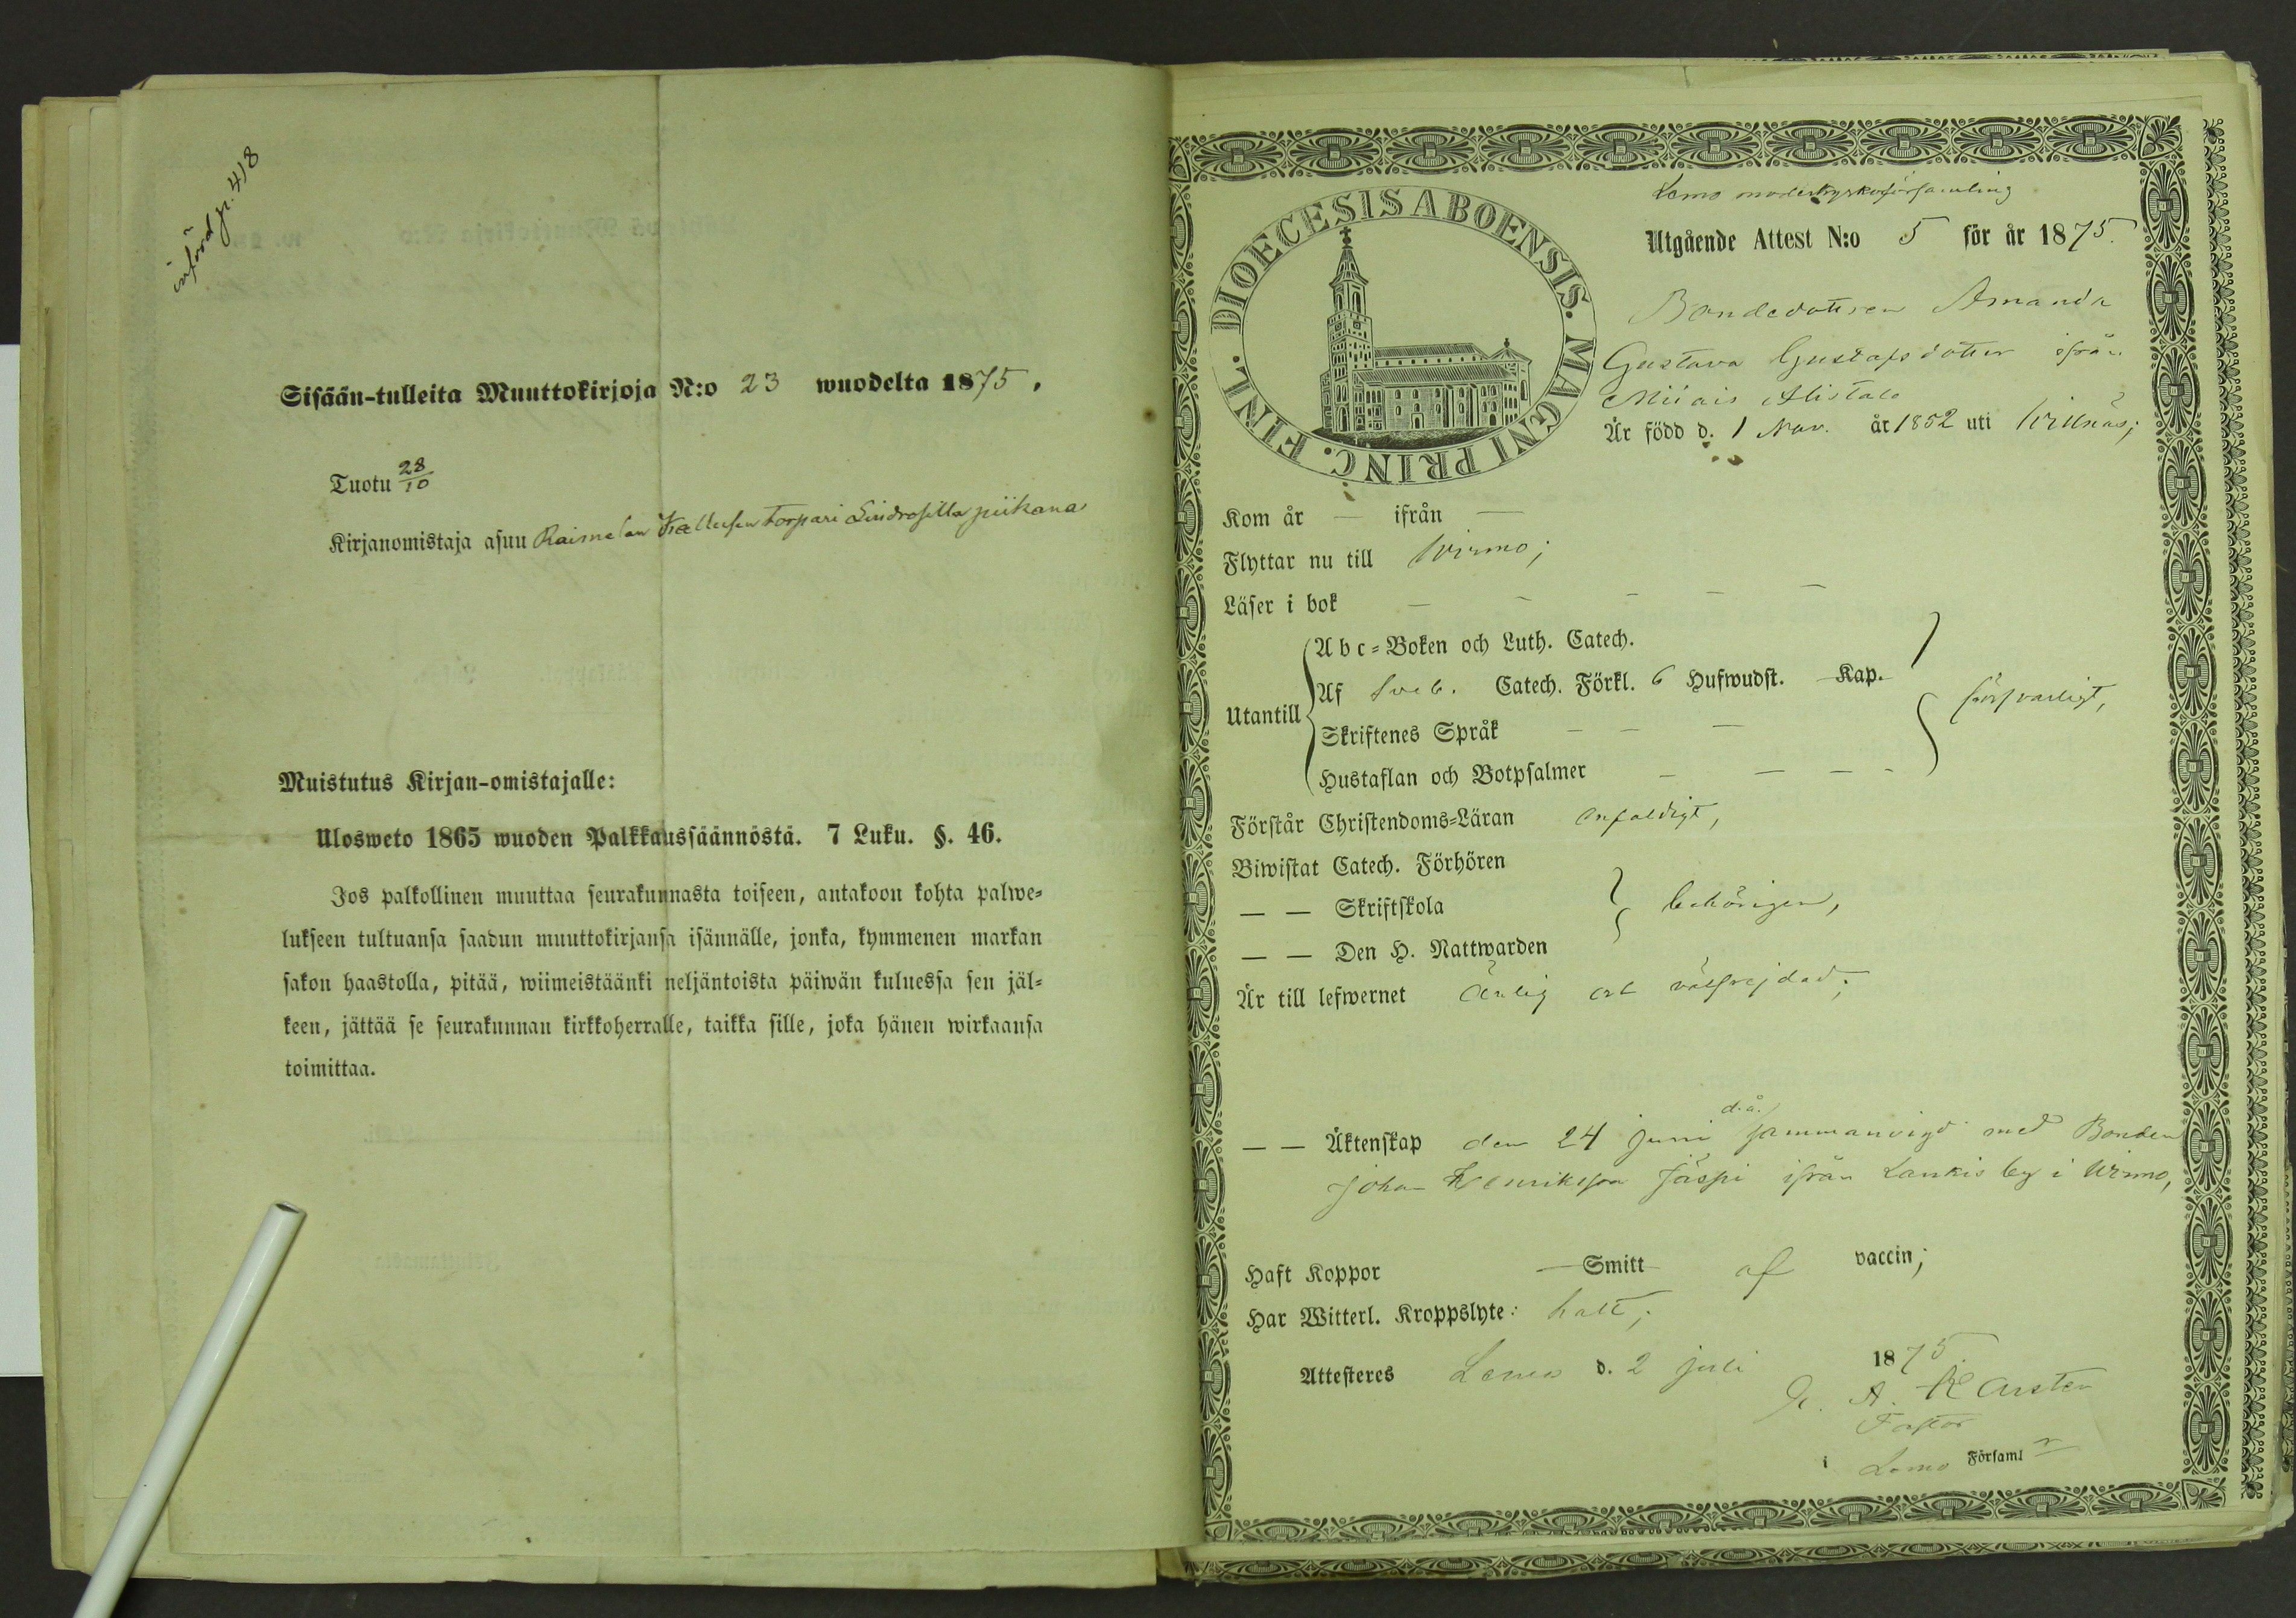 införd p. 418
Sisään-tulleita Muuttokirjoja N:o 23 wuodelta 1875.
Tuotu 28/10
Kirjanomistaja asuu Raimelan torpari Lindrosilla piikana
Muistutus Kirjan-omistajalle:
Ulosweto 1865 wuoden Palkkaussäännöstä. 7 Luku. §. 46.
Jos palkollinen muuttaa seurakunnasta toiseen, antakoon kohta palwe=
lukseen tultuansa saadun muuttokirjansa isännälle, jonka, kymmenen markan
sakon haastolla, pitää, wiimeistäänki neljäntoista päiwän kuluessa sen jäl=
keen, jättää se seurakunnan kirkkoherralle, taikka sille, joka hänen wirkaansa
toimittaa.
DIOECESIS ABOENSIS. MAGNI PRINC. FINL.
Lemo moderkyrkoförsamling
Utgående Attest N:o 5 för år 1875.
Bondedottren Amanda
Gustava Gustafsdotter ifrån
Alistalo
Är född d. 1 Nov. år 1852 uti Villnäs;
Kom år — ifrån —
Flyttar nu till Virmo;
Läser i bok — — — — —
Abc=Boken och Luth. Catech.
Utantill Af Sveb. Catech. Förkl. 6 Hufwudst. Kap. försvarligt,
Skriftenes Språk — — —
Hustaflan och Botpsalmer — — — -
Förstår Christendoms=Läran enfaldigt,
Biwistat Catech. Förhören
— — Skriftskola behörigen,
— — Den H. Nattwarden
Är till lefwernet ärlig och välfrejdad;
d. å.
— — Äktenskap den 24 juni sammanvigd med Bonden
Johan Henriksson Jäspi ifrån Lankis by i Virmo,
Haft Koppor Smitt af vaccin;
Har Witterl. Kroppslyte: halt;
Attesteres Lemo d. 2 juli 1875
G. A. Karsten
Pastor
i Lemo Församl